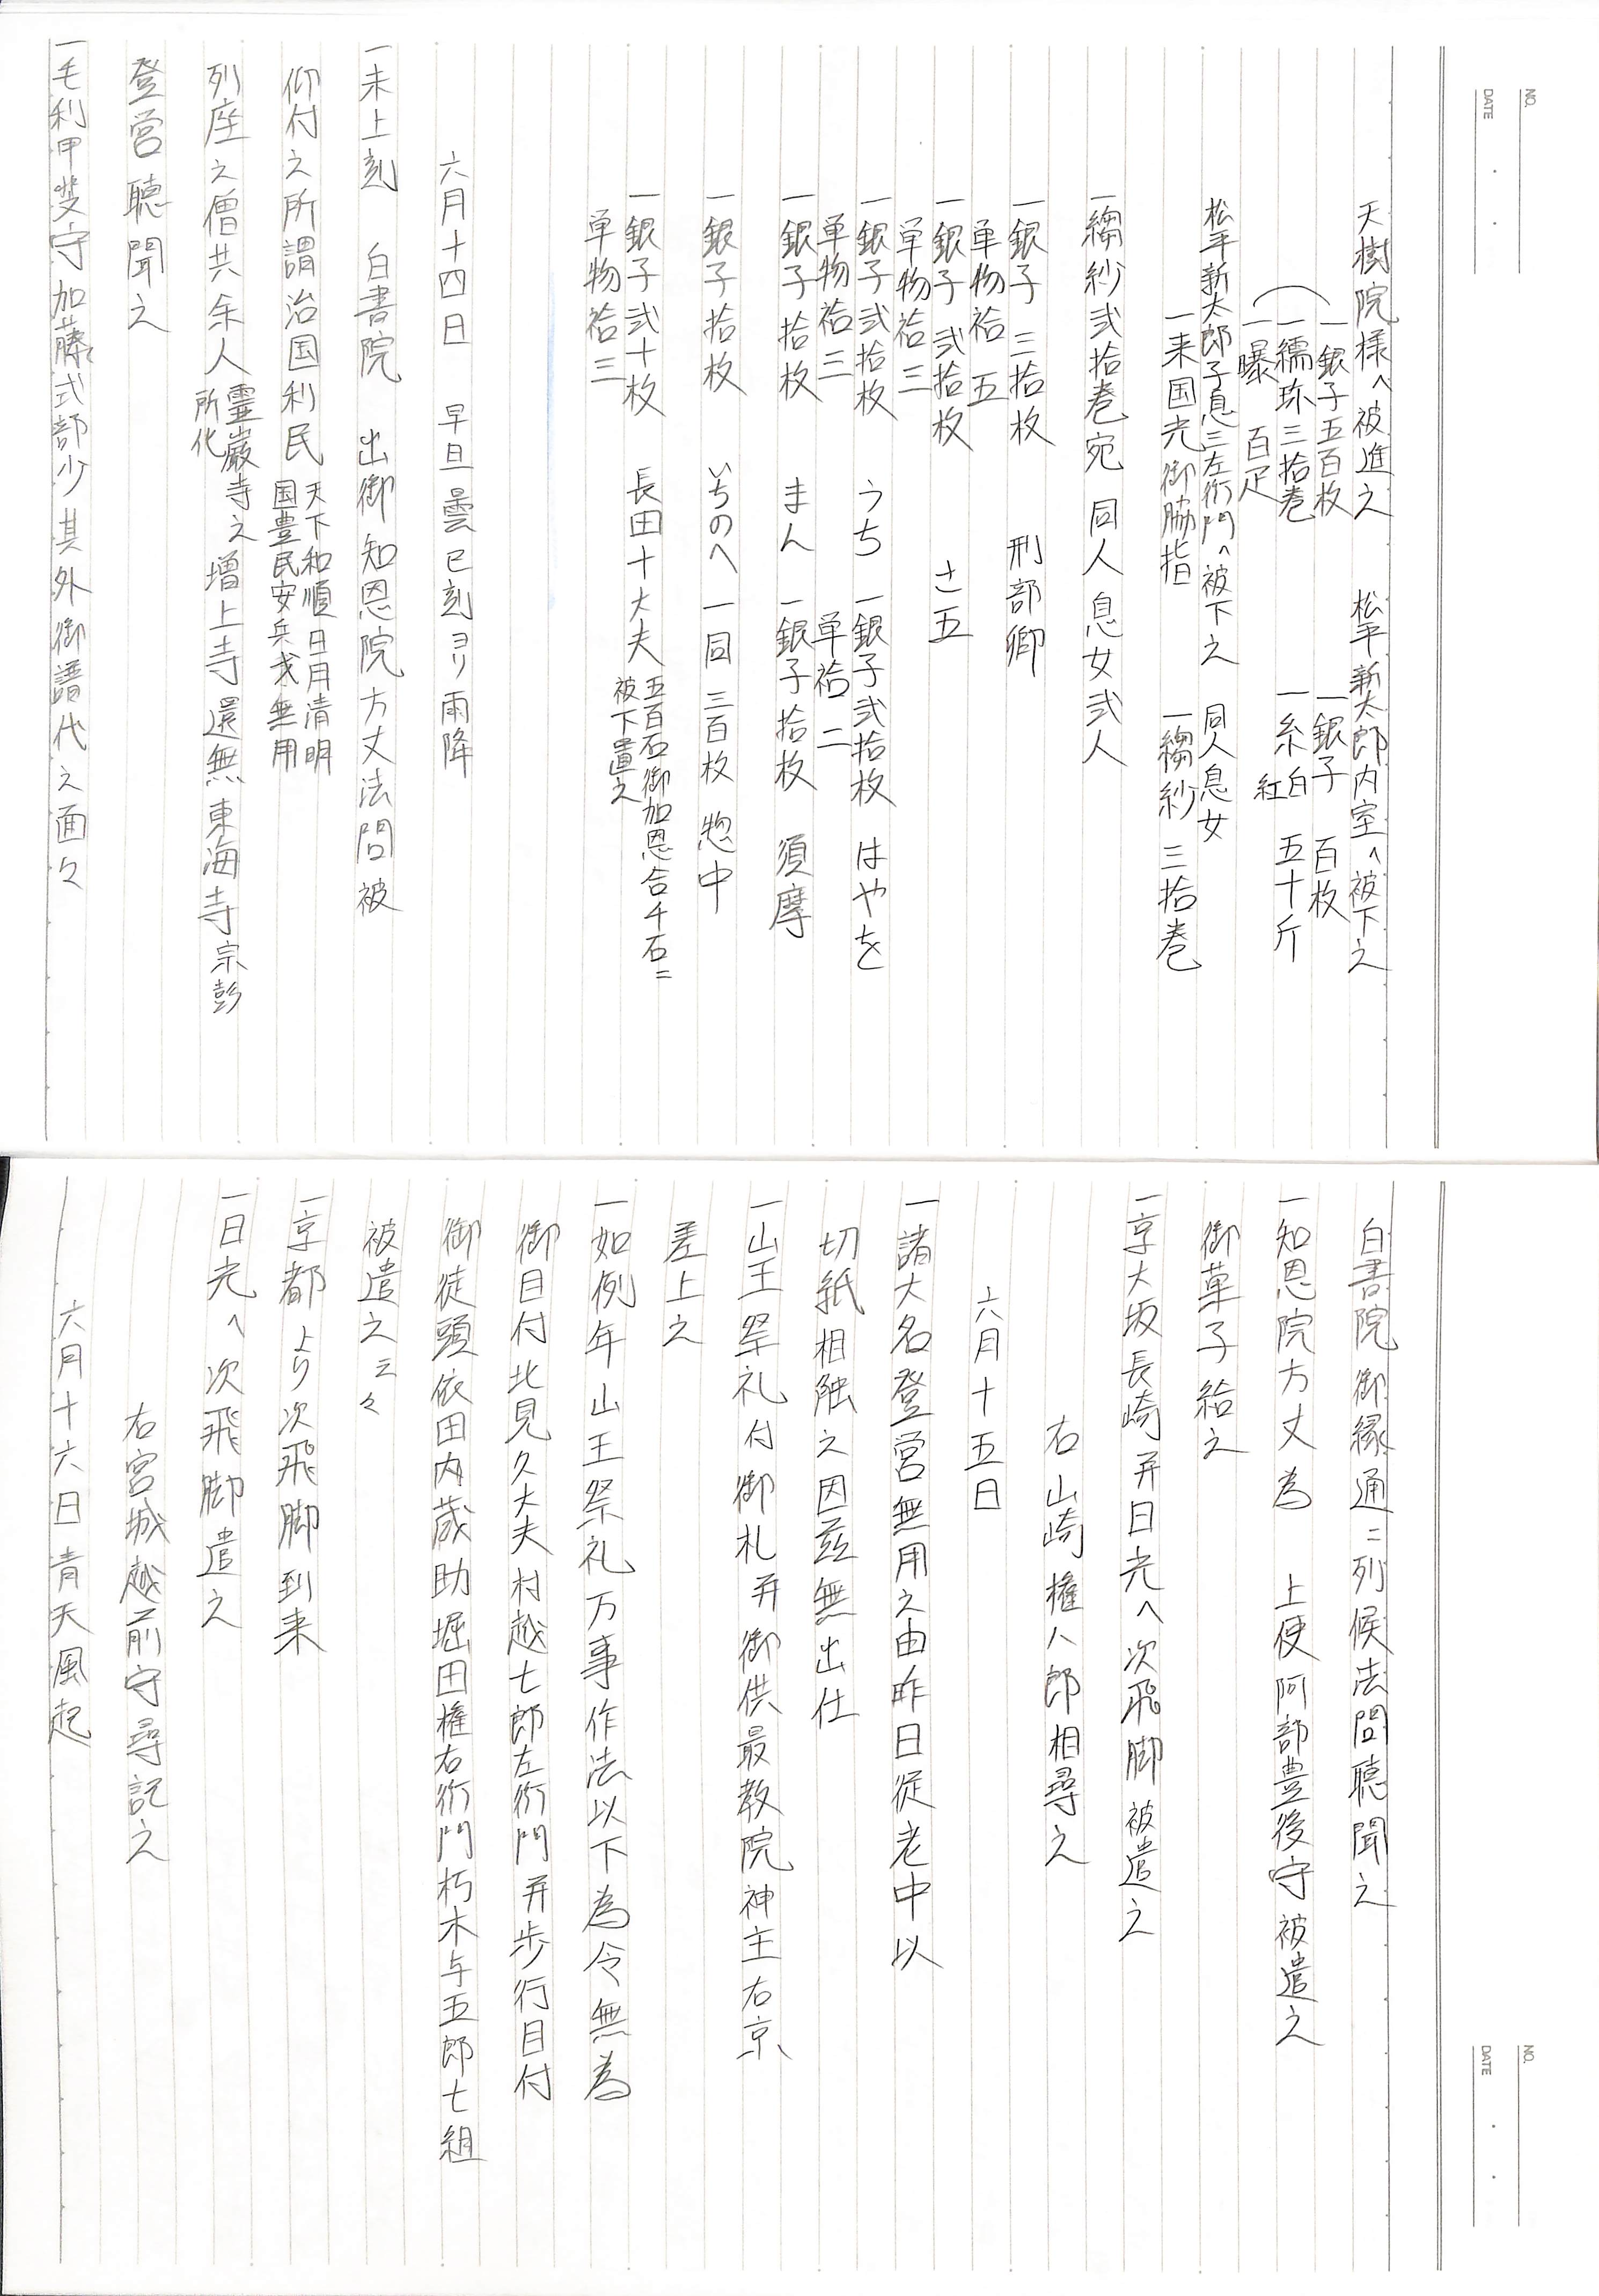 NO.
DATE
天樹院様へ被進之　松平新太郎内室へ被下之
一銀子五百枚　一銀子　百枚
一繻珎三拾巻　一糸白紅　五十斤
一曝　百疋
松平新太郎子息三左衛門へ被下之　同人息女
一来国光御脇指　一縐紗　三拾巻
一縐紗弐拾巻宛　同人息女弐人
一銀子　三拾枚　刑部卿
単物袷五
一銀子　弐拾枚　さ五
単物袷三
一銀子弐拾枚　うち　一銀子弐拾枚　はやを
単物袷三　単袷二
一銀子拾枚　まん　一銀子拾枚　須摩
一銀子拾枚　いちのへ　一同三百枚　惣中
一銀子弐十枚　長田十大夫　五百石御加恩合千石ニ
単物袷三　被下置之
六月十四日　早旦曇巳刻ヨリ雨降
一未上刻　白書院　出御知恩院方丈法問被
仰付之所謂治国利民　天下和順日月清明
国豊民安兵戈無用
列座之僧共余人　霊巌寺之所化　増上寺還無東海寺宗彭
登営聴聞之
一毛利甲斐守加藤式部少其外御譜代之面々
NO.
DATE
白書院御縁通ニ列候法問聴聞之
一知恩院方丈為　上使阿部豊後守被遣之
御菓子給之
一京大坂長崎并日光へ次飛脚被遣之
右山崎権八郎相尋之
六月十五日
一諸大名登営無用之由昨日従老中以
切紙相触之因茲無出仕
一山王祭礼付御札并御供最教院神主右京
差上之
一如例年山王祭礼万事作法以下為令無為
御目付北見久大夫村越七郎左衛門并歩行目付
御徒頭依田内蔵助堀田権右衛門朽木与五郎七組
被遣之云々
一京都より次飛脚到来
一日光へ次飛脚遣之
右宮城越前守尋記之
六月十六日青天風起